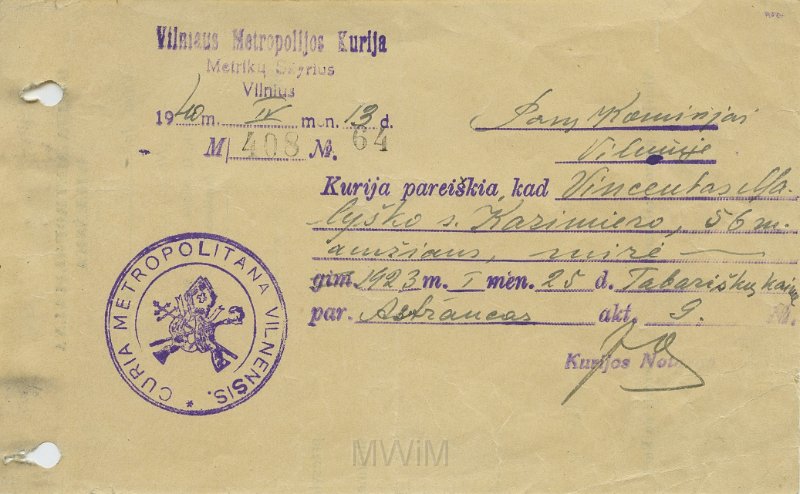 Vilniaus Metropolijos Kurija
Metrikų Skyrius
Vilnius
1940 m. IV mėn. 13 d.
M 408 №. 64
Vilniuje
Kurija pareiškia, kad Vincentas Ma-
lyško s. Kazimiero, 56 m.
amžiaus, mirė —
gim 1923 m. I mėn. 25 d. Tabariškų kaime
par. akt. 9. №.
Kurijos Not
CURIA METROPOLITANA VILNENSIS. *
MWiM